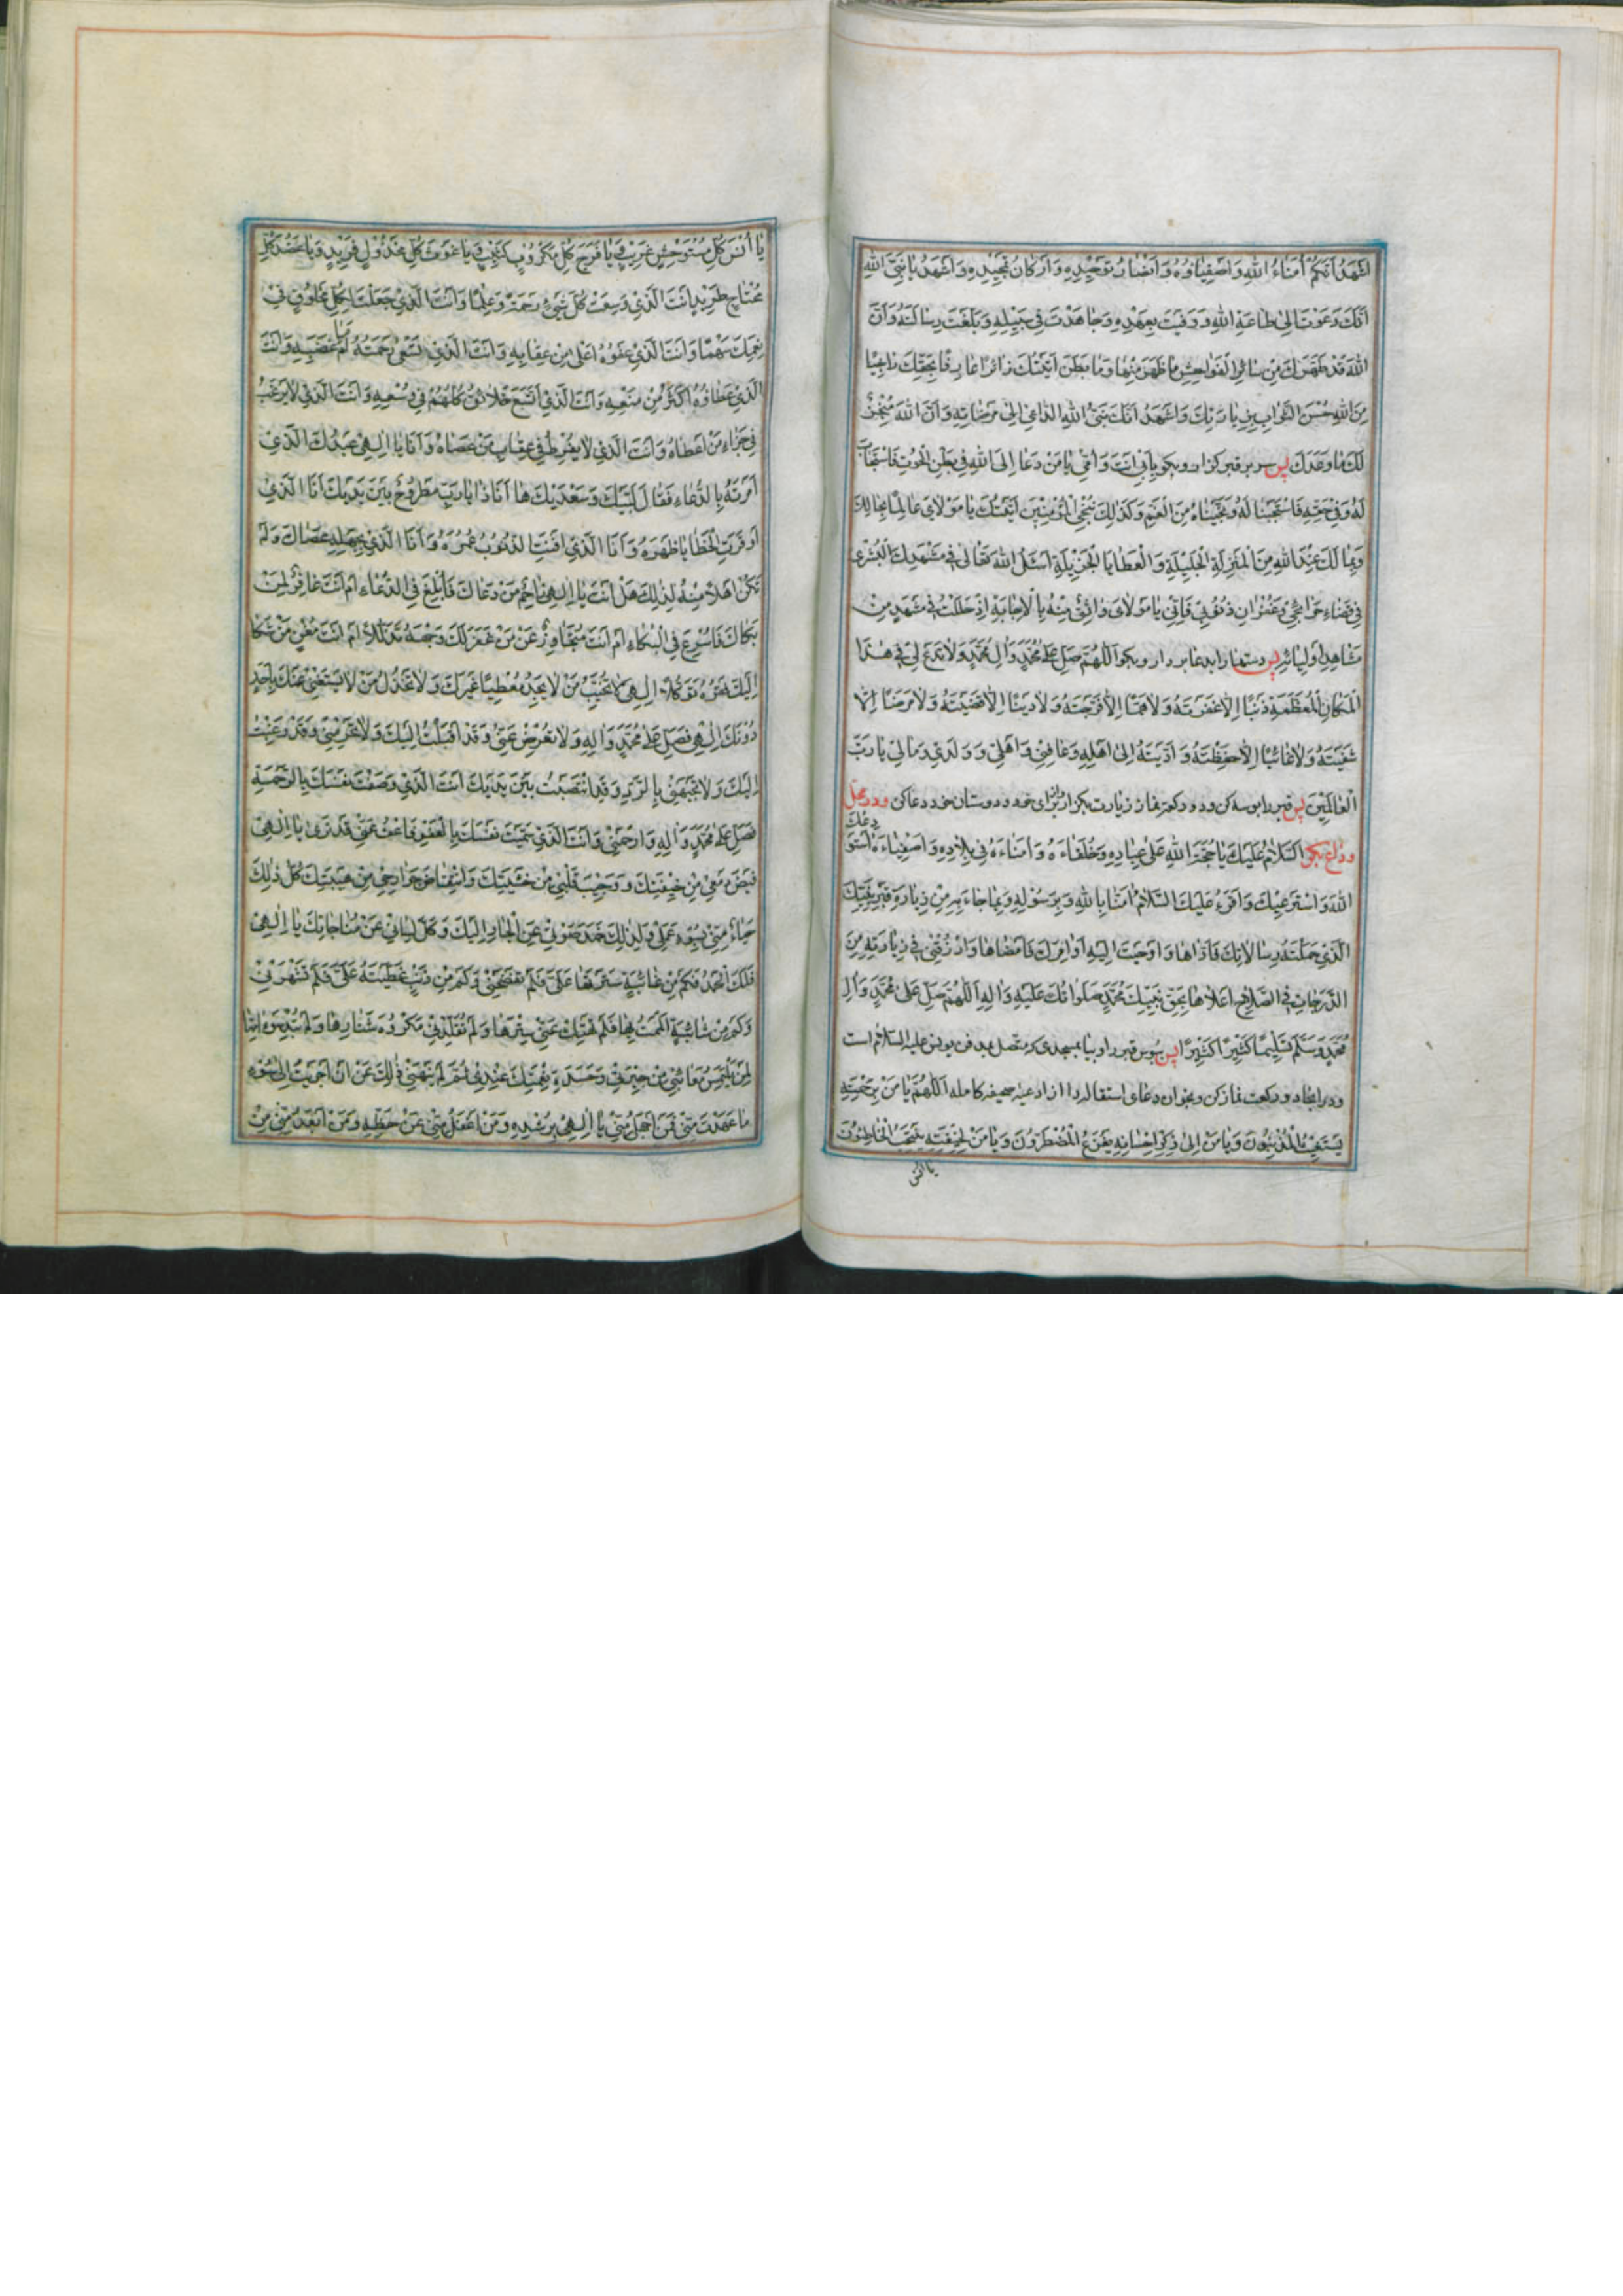 اَشْهَدُ اَنَّكُمْ اُمَنَاءُ اللهِ وَاَصْفِيَاؤُهُ وَاَنْصَارُ تَوْحِيدِهِ وَاَرْكَانُ تَمْجِيدِهِ وَاَشْهَدُ يَا نَبِيَّ اللهِ
اَنَّكَ دَعَوْتَ اِلىٰ طَاعَةِ اللهِ وَوَفَيْتَ بِعَهْدِهِ وَجَاهَدْتَ فِي سَبِيلِهِ وَبَلَّغْتَ رِسَالَتَهُ وَاَنَّ
اللهَ قَدْ طَهَّرَكَ مِنْ سَائِرِ الْفَوَاحِشِ مَا ظَهَرَ مِنْهَا وَمَا بَطَنَ اَتَيْتُكَ زَائِرًا عَارِفًا بِحَقِّكَ رَاجِيًا
مِنَ اللهِ حُسْنَ الثَّوَابِ بِزِيَارَتِكَ وَاَشْهَدُ اَنَّكَ نَبِيُّ اللهِ الدَّاعِي اِلىٰ مَرْضَاتِهِ وَاَنَّ اللهَ مُنْجِزٌ
لَكَ مَا وَعَدَكَ پس سر بر قبر گذار و بگو بِاَبِي اَنْتَ وَاُمِّي يَا مَنْ دَعَا اِلَى اللهِ فِي بَطْنِ الْحُوتِ فَاسْتَجَابَ
لَهُ وَفِي حَقِّهِ فَاسْتَجَبْنَا لَهُ وَنَجَّيْنَاهُ مِنَ الْغَمِّ وَكَذٰلِكَ نُنْجِي الْمُؤْمِنِينَ اَتَيْتُكَ يَا مَوْلَايَ عَالِمًا بِحَالِكَ
وَبِمَا لَكَ عِنْدَ اللهِ مِنَ الْمَنْزِلَةِ الْجَلِيلَةِ وَالْعَطَايَا الْجَزِيلَةِ اَسْئَلُ اللهَ تَعَالىٰ فِي مَشْهَدِكَ الْبُشْرىٰ
فِي قَضَاءِ حَوَائِجِي وَغُفْرَانِ ذُنُوبِي فَاِنِّي يَا مَوْلَايَ وَاثِقٌ مِنْهُ بِالْاِجَابَةِ اِذْ حَلَلْتُ فِي مَشْهَدٍ مِنْ
مَشَاهِدِ اَوْلِيَائِهِ پس دستها را بدعا بردار و بگو اَللّٰهُمَّ صَلِّ عَلىٰ مُحَمَّدٍ وَاٰلِ مُحَمَّدٍ وَلَا تَدَعْ لِي فِي هٰذَا
الْمَكَانِ الْمُعَظَّمَةِ ذَنْبًا اِلَّا غَفَرْتَهُ وَلَا هَمًّا اِلَّا فَرَّجْتَهُ وَلَا دَيْنًا اِلَّا قَضَيْتَهُ وَلَا مَرَضًا اِلَّا
شَفَيْتَهُ وَلَا غَائِبًا اِلَّا حَفِظْتَهُ وَاَدَّيْتَهُ اِلىٰ اَهْلِهِ وَعَافِنِي وَاَهْلِي وَوَلَدِي وَمَالِي يَا رَبَّ
الْعَالَمِينَ پس قبر را بوسه كن و دو ركعت نماز زيارت بگزار و براى خود و دوستان خود دعا كن و در محل
وداع بگو اَلسَّلَامُ عَلَيْكَ يَا حُجَّةَ اللهِ عَلىٰ عِبَادِهِ وَخُلَفَاءَهُ وَاُمَنَاءَهُ فِي بِلَادِهِ وَاَصْفِيَاءَهُ اَسْتَوْدِعُكَ
اللهَ وَاَسْتَرْعِيكَ وَاَقْرَءُ عَلَيْكَ السَّلَامُ اٰمَنَّا بِاللهِ وَبِرَسُولِهِ وَبِمَا جَاءَ بِهِ مِنْ زِيَارَةِ قَبْرِ نَبِيِّكَ
الَّذِي حَمَّلْتَهُ رِسَالَاتِكَ فَاَدَّاهَا وَاَوْحَيْتَ اِلَيْهِ اَوَامِرَكَ فَاَمْضَاهَا وَارْزُقْنِي فِي زِيَارَتِهِ مِنَ
الدَّرَجَاتِ فِي الصَّلَاحِ اَعْلَاهَا بِحَقِّ نَبِيِّكَ مُحَمَّدٍ صَلَوَاتُكَ عَلَيْهِ وَاٰلِهِ اَللّٰهُمَّ صَلِّ عَلىٰ مُحَمَّدٍ وَاٰلِ
مُحَمَّدٍ وَسَلِّمْ تَسْلِيمًا كَثِيرًا كَثِيرًا پس ببوس قبر را و بيا بمسجدى كه متصل بمدفن يونس عليه السلام است
و در انجا دو ركعت نماز كن و بخوان دعاى استقاله را از ادعيه صحيفه كامله اَللّٰهُمَّ يَا مَنْ بِرَحْمَتِهِ
يَسْتَغِيثُ الْمُذْنِبُونَ وَيَا مَنْ اِلىٰ ذِكْرِ اِحْسَانِهِ يَفْزَعُ الْمُضْطَرُّونَ وَيَا مَنْ لِخِيفَتِهِ يَنْتَحِبُ الْخَاطِئُونَ
يا انس
يَا اُنْسَ كُلِّ مُسْتَوْحِشٍ غَرِيبٍ وَيَا فَرَجَ كُلِّ مَكْرُوبٍ كَئِيبٍ وَيَا غَوْثَ كُلِّ مَخْذُولٍ فَرِيدٍ وَيَا عَضُدَ كُلِّ
مُحْتَاجٍ طَرِيدٍ اَنْتَ الَّذِي وَسِعْتَ كُلَّ شَيْءٍ رَحْمَةً وَعِلْمًا وَاَنْتَ الَّذِي جَعَلْتَ لِكُلِّ مَخْلُوقٍ فِي
نِعَمِكَ سَهْمًا وَاَنْتَ الَّذِي عَفْوُهُ اَعْلىٰ مِنْ عِقَابِهِ وَاَنْتَ الَّذِي تَسْعىٰ رَحْمَتُهُ اَمَامَ غَضَبِهِ وَاَنْتَ
الَّذِي عَطَاؤُهُ اَكْثَرُ مِنْ مَنْعِهِ وَاَنْتَ الَّذِي اتَّسَعَ خَلَائِقُ كُلُّهُمْ فِي وُسْعِهِ وَاَنْتَ الَّذِي لَا يَرْغَبُ
فِي جَزَاءِ مَنْ اَعْطَاهُ وَاَنْتَ الَّذِي لَا يُفْرِطُ فِي عِقَابِ مَنْ عَصَاهُ وَاَنَا يَا اِلٰهِي عَبْدُكَ الَّذِي
اَمَرْتَهُ بِالدُّعَاءِ فَقَالَ لَبَّيْكَ وَسَعْدَيْكَ هَا اَنَا ذَا يَا رَبِّ مَطْرُوحٌ بَيْنَ يَدَيْكَ اَنَا الَّذِي
اَوْقَرَتِ الْخَطَايَا ظَهْرَهُ وَاَنَا الَّذِي اَفْنَتِ الذُّنُوبُ عُمُرَهُ وَاَنَا الَّذِي بِجَهْلِهِ عَصَاكَ وَلَمْ
تَكُنْ اَهْلًا مِنْهُ لِذٰلِكَ هَلْ اَنْتَ يَا اِلٰهِي رَاحِمٌ مَنْ دَعَاكَ فَاُبْلِغَ فِي الدُّعَاءِ اَمْ اَنْتَ غَافِرٌ لِمَنْ
بَكَاكَ فَاُسْرِعَ فِي الْبُكَاءِ اَمْ اَنْتَ مُتَجَاوِزٌ عَنْ مَنْ عَفَّرَ لَكَ وَجْهَهُ تَذَلُّلًا اَمْ اَنْتَ مُغْنٍ مَنْ شَكَا
اِلَيْكَ فَقْرَهُ تَوَكُّلًا اِلٰهِي لَا تُخَيِّبْ مَنْ لَا يَجِدُ مُعْطِيًا غَيْرَكَ وَلَا تَخْذُلْ مَنْ لَا يَسْتَغْنِي عَنْكَ بِاَحَدٍ
دُونَكَ اِلٰهِي فَصَلِّ عَلىٰ مُحَمَّدٍ وَاٰلِهِ وَلَا تُعْرِضْ عَنِّي وَقَدْ اَقْبَلْتُ اِلَيْكَ وَلَا تَحْرِمْنِي وَقَدْ رَغِبْتُ
اِلَيْكَ وَلَا تَجْبَهْنِي بِالرَّدِّ وَقَدِ انْتَصَبْتُ بَيْنَ يَدَيْكَ اَنْتَ الَّذِي وَصَفْتَ نَفْسَكَ بِالرَّحْمَةِ
فَصَلِّ عَلىٰ مُحَمَّدٍ وَاٰلِهِ وَارْحَمْنِي وَاَنْتَ الَّذِي سَمَّيْتَ نَفْسَكَ بِالْعَفْوِ فَاعْفُ عَنِّي قَدْ تَرىٰ يَا اِلٰهِي
فَيْضَ دَمْعِي مِنْ خِيفَتِكَ وَوَجِيبَ قَلْبِي مِنْ خَشْيَتِكَ وَانْتِفَاضَ جَوَارِحِي مِنْ هَيْبَتِكَ كُلُّ ذٰلِكَ
حَيَاءً مِنِّي بِسُوءِ عَمَلِي وَلِذٰلِكَ خَمَدَ صَوْتِي عَنِ الْجَارِ اِلَيْكَ وَكَلَّ لِسَانِي عَنْ مُنَاجَاتِكَ يَا اِلٰهِي
فَلَكَ الْحَمْدُ فَكَمْ مِنْ غَائِبَةٍ سَتَرْتَهَا عَلَيَّ فَلَمْ تَفْضَحْنِي وَكَمْ مِنْ ذَنْبٍ غَطَّيْتَهُ عَلَيَّ فَلَمْ تَشْهَرْنِي
وَكَمْ مِنْ شَائِبَةٍ اَلْمَمْتُ بِهَا فَلَمْ تَهْتِكْ عَنِّي سِتْرَهَا وَلَمْ تُقَلِّدْنِي مَكْرُوهَ شَنَارِهَا وَلَمْ تُبْدِ سَوْاٰتِهَا
لِمَنْ يَلْتَمِسُ مَعَائِبِي مِنْ جِيرَتِي وَحَسَدَةِ نِعْمَتِكَ عِنْدِي ثُمَّ لَمْ يَنْهَنِي ذٰلِكَ عَنْ اَنْ اَجْرَيْتُ اِلىٰ سُوءِ
مَا عَهِدْتَ مِنِّي فَمَنْ اَجْهَلُ مِنِّي يَا اِلٰهِي بِرُشْدِهِ وَمَنْ اَغْفَلُ مِنِّي عَنْ حَظِّهِ وَمَنْ اَبْعَدُ مِنِّي مِنْ